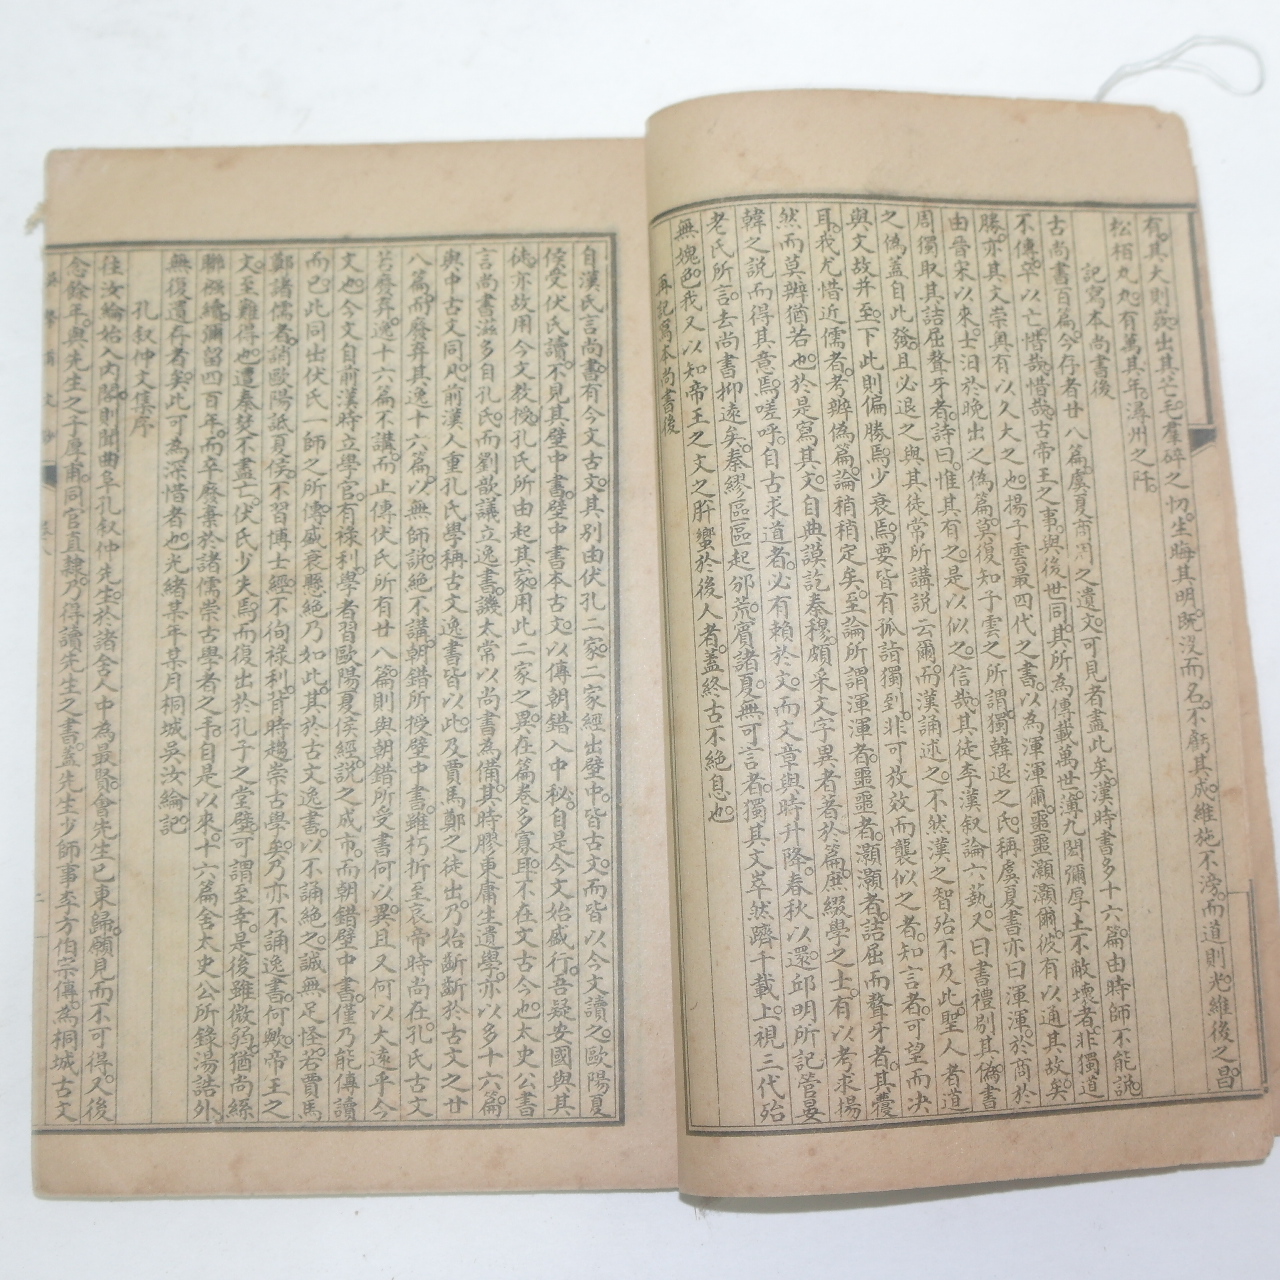 有。其大則㪍。出其芒毛。羣碎之切。生晦其明。既沒而名。不虧其成。維施不滂。而道則光。維後之昌。
松栢丸丸。有萬其年。濡州之阡。
記寫本尚書後
古尚書百篇。今存者廿八篇。虞夏商周之遺文。可見者盡此矣。漢時書多十六篇。由時師不能說。
不傳。卒以亡。惜哉惜哉。古帝王之事。與後世同。其所為傳載萬世。薄九閎彌厚土不敝壞者。非獨道
勝。亦其文崇奧有以久大之也。揚子雲最四代之書。以為渾渾爾。噩噩灝灝爾。彼有以通其故矣。
由晉宋以來。士汨於晚出之偽篇。莫復知子雲之所謂。獨韓退之氏。稱虞夏書亦曰渾渾。於商於
周。獨取其詰屈聱牙者。詩曰。惟其有之。是以似之。信哉。其徒李漢叙論六蓺。又曰書禮剔其偽。書
之偽蓋自此發。且必退之與其徒常所講說云爾。而漢誦述之。不然漢之智殆不及此。聖人者道
與文故并至。下此則偏勝焉。少衰焉。要皆有孤詣獨到。非可放效而襲似之者。知言者可望而决
耳。我尤惜近儒者。考辨偽篇。論稍稍定矣。至論所謂渾渾者。噩噩者。灝灝者。詰屈而聱牙者。其蘉
然而莫辨猶若也。於是寫其文。自典謨訖秦穆。頗采文字異者。著於篇。庶綴學之士。有以考求揚
韓之說而得其意焉。嗟呼。自古求道者。必有賴於文。而文章與時升降。春秋以還。邱明所記。管晏
老氏所言。去尚書抑遠矣。秦繆區區起邠荒。賓諸夏。無可言者。獨其文崒然躋千載上。視三代殆
無媿色。我又以知帝王之文之肸蠁於後人者。蓋終古不絕息也。
再記寫本尚書後
自漢氏言尚書。有今文古文。其別由伏孔二家。二家經出壁中。皆古文。而皆以今文讀之。歐陽夏
侯受伏氏讀。不見其壁中書。壁中書本古文。以傳朝錯入中秘。自是今文始盛行。吾疑安國與其
徒亦故用今文教授。孔氏所由起其家。用此二家之異。在篇卷多寡耳。不在文古今也。太史公書
言尚書滋多自孔氏。而劉歆議立逸書。譏太常以尚書為備。其時膠東庸生遺學。亦以多十六篇
與中古文同。凡前漢人重孔氏學。稱古文逸書。皆以此。及賈馬鄭之徒出。乃始斷斷於古文之廿
八篇。而廢弃其逸十六篇。以無師說絕不講。朝錯所授壁中書。雖朽折。至哀帝時尚在。孔氏古文
若廢弃逸十六篇不講。而止傳伏氏所有廿八篇。則與朝錯所受書何以異。且又何以大遠乎今
文也。今文自前漢時立學官。有祿利。學者習歐陽夏侯經說。之成市。而朝錯壁中書。僅乃能傳讀
而已。此同出伏氏一師之所傳。盛衰懸絕乃如此。其於古文逸書。以不誦絕之。誠無足怪。若賈馬
鄭諸儒者。誚歐陽詆夏侯。不習博士經。不徇祿利。背時趨崇古學矣。乃亦不誦逸書。何歟。帝王之
文。至難得也。遭秦焚不盡亡。伏氏少失焉。而復出於孔子之堂壁。可謂至幸。是後雖微弱。猶尚緜
聯襁續。彌留四百年。而卒廢棄於諸儒崇古學者之手。自是以來。十六篇舍太史公所錄湯誥外
無復遺存者矣。此可為深惜者也。光緒某年某月桐城吳汝綸記
孔叙仲文集序
往汝綸始入內閣。則聞曲阜孔叙仲先生。於諸舍人中為最賢。會先生已東歸。願見而不可得。又後
念餘年。與先生之子厚甫。同官直隸。乃得讀先生之書。蓋先生少師事李方伯宗傳。為桐城古文